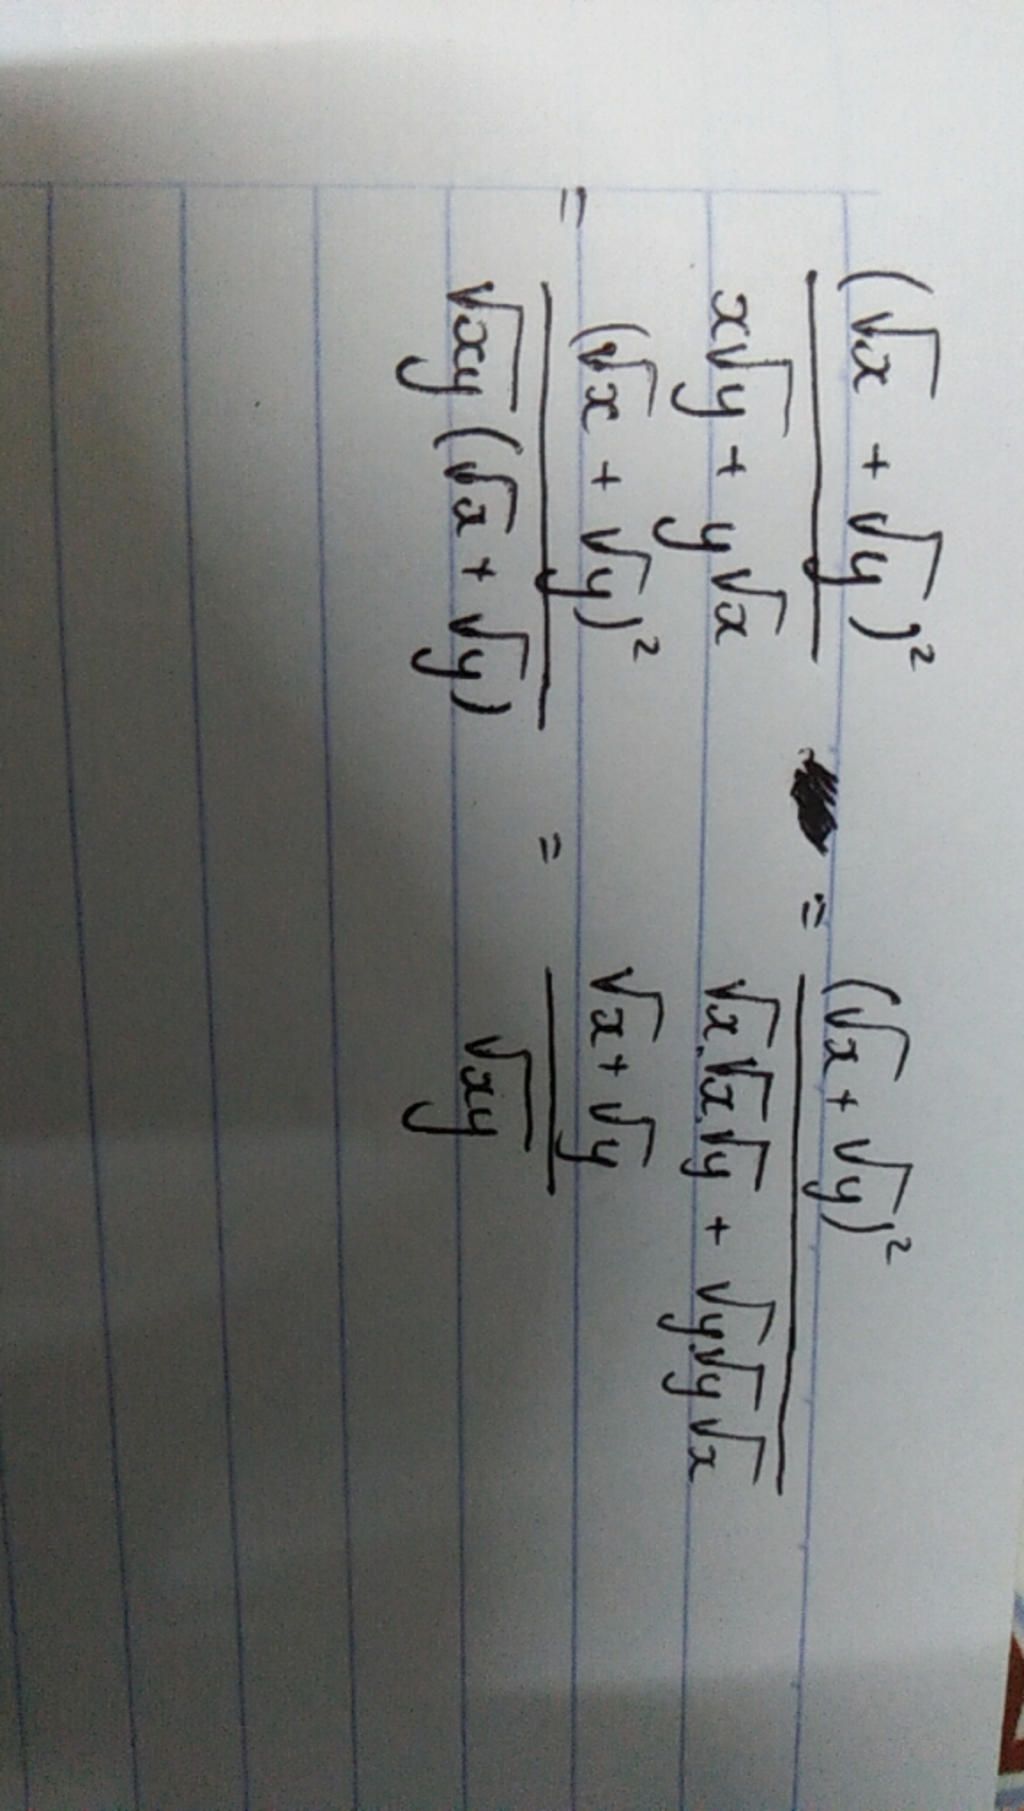 (√x + √y)² / (x√y + y√x) = (√x + √y)² / (√x.√x.√y + √y.√y√x)
= (√x + √y)² / (√xy (√x + √y)) = (√x + √y) / √xy